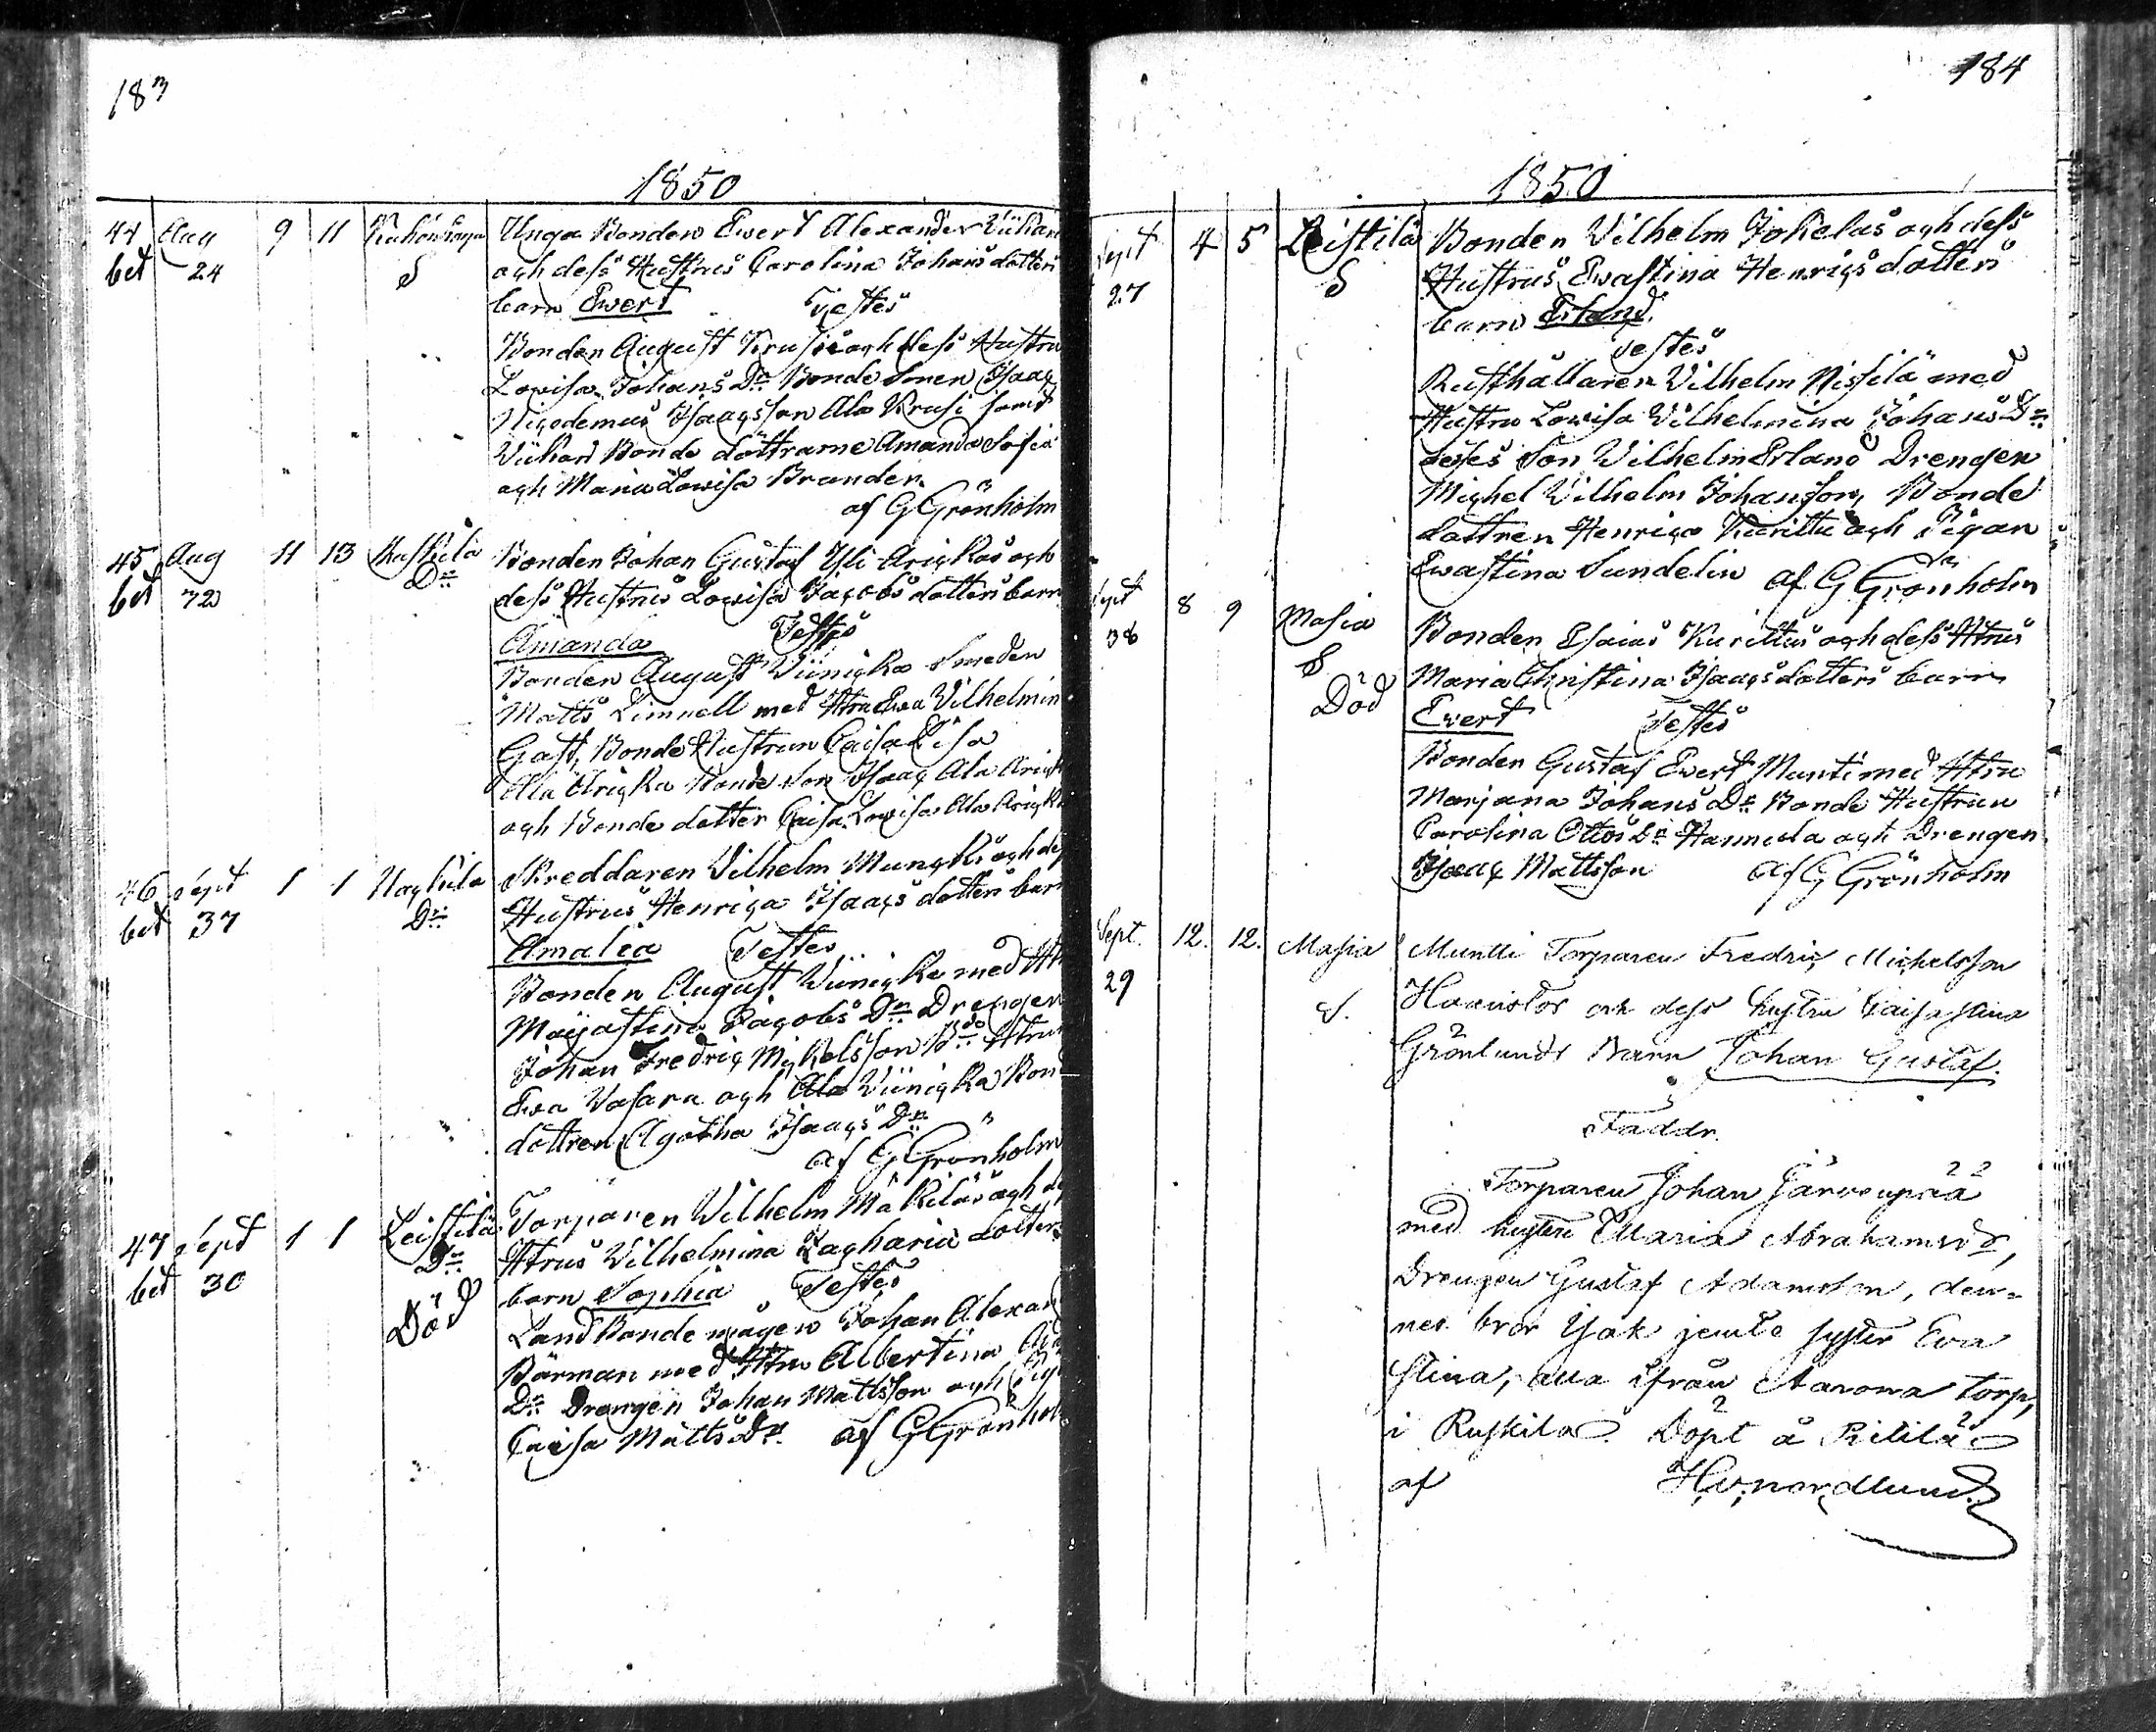 183
1850
44 Aug 9 11 Unga Bonden Ewert Alexander
bet 24 S och dess Hustrus Carolina Johans dotters
barn Ewert Testes
Bonden August Krusi och dess Hustru
Lovisa Johans Dr Bonde Sonen Isaac
Nicodemus Isaacsson Ala Krusi samt
Bonde döttrarne Amanda Sofia
och Maria Lovisa Brander
af G Grönholm
45 Aug 11 13 Bonden Johan Gustaf Yli Arickas och
bet 72 Dr dess Hustrus Lovisa Jacobs dotters barn
Amanda Testes
Bonden August Wiinicka Smeden
Matts Limnell med Htru Ewa Vilhelmin
Gast, Bonde Hustrun Caisa Lisa
Ala Aricka Bonde Son Isaac Ala Arick
och Bonde dotter Caisa Lovisa Ala Aricka
46 Sept 1 1 Skreddaren Vilhelm Muncks och des
bet 37 Dr Hustrus Henrica Isaacs dotters barn
Amalia Testes
Bonden August Wiinicka med Ht
Majastina Jacobs Dr Drengen
Johan Fredric Mickelsson Htru
Ewa Vasara och Ala Wiinicka Bon
dottren Agatha Isaacs Dr
af G Grönholm
47 Sept 1 1 Leistilä Torparen Vilhelm Mäkiläs och de
bet 30 Dr Htrus Vilhelmina Zacharia dotters
Död barn Sophia Testes
Landbonde mågen Johan Alexan
Bärman med Htru Albertina
Dr Drengen Johan Mattsson och Pig
Caisa Matts Dr af G Grönhol
184
1850
Sept 4 5 Leistilä Bonden Vilhelm Jokelas och dess
27 S Hustrus Ewastina Henrics dotters
barn Erland
Testes
Rusthållaren Vilhelm Nissilä med
Hustru Lovisa Vilhelmina Johans Dr
deses Son Vilhelm Erland Drengen
Michel Vilhelm Johansson, Bonde
dottren Henrica Kurittu och Pigan
Ewastina Sundelin af G Grönholm
Sept 8 9 Masia Bonden Esaias Kurittus och dess Htrus
38 S Maria Christina Isaacs dotters barn
Död Ewert Testes
Bonden Gustaf Ewert Muntti med Htru
Marjana Johans Dr Bonde Hustrun
Carolina Ottos Dr Hannula och Drengen
Isaac Mattsson af G Grönholm
Sept. 12. 12. Masia Muntti Torparen Fredric Michelsson
29 S. Haanistos och dess hustru Caisa Stina
Grönlunds Barn Johan Gustaf.
Faddr.
Torparen Johan Järwenpää
med hustru Maria Abrahamsdr,
Drengen Gustaf Adamsson, den-
nes bror Isak jemte syster Eva
Stina, alla ifrån Aarona torp,
i Ruskila. Döpt å Pitilä
af H. v. Nordlund.